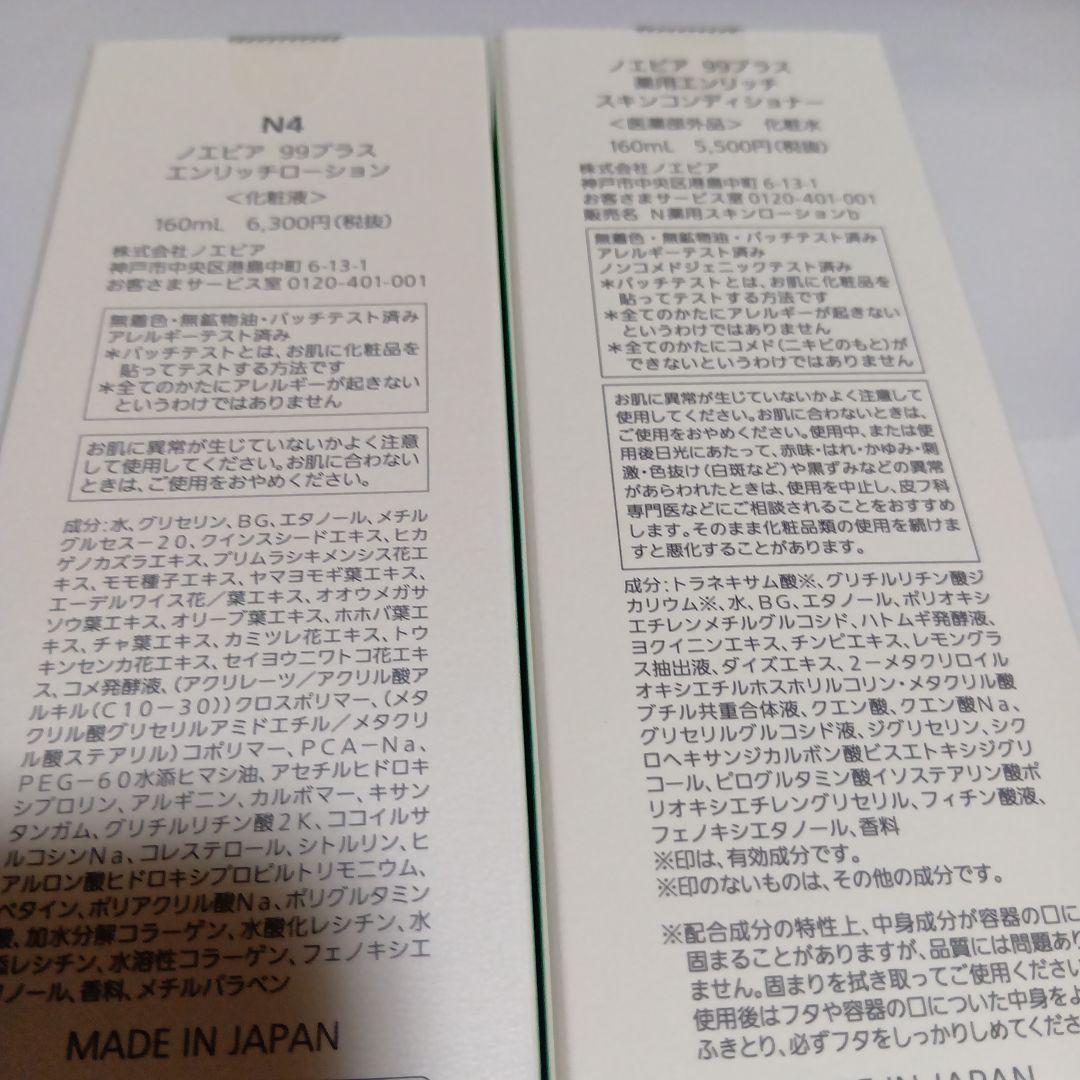 N4
ノエビア 99プラス
エンリッチローション
＜化粧液＞
160mL 6,300円(税抜)
株式会社ノエビア
神戸市中央区港島中町 6-13-1
お客さまサービス室 0120-401-001
無着色・無鉱物油・パッチテスト済み
アレルギーテスト済み
＊パッチテストとは、お肌に化粧品を
貼ってテストする方法です
＊全てのかたにアレルギーが起きない
というわけではありません
お肌に異常が生じていないかよく注意
して使用してください。お肌に合わない
ときは、ご使用をおやめください。
成分：水、グリセリン、BG、エタノール、メチル
グルセス－20、クインスシードエキス、ヒカ
ゲノカズラエキス、プリムラシキメンシス花エ
キス、モモ種子エキス、ヤマヨモギ葉エキス、
エーデルワイス花／葉エキス、オオウメガサ
ソウ葉エキス、オリーブ葉エキス、ホホバ葉エ
キス、チャ葉エキス、カミツレ花エキス、トウ
キンセンカ花エキス、セイヨウニワトコ花エキ
ス、コメ発酵液、(アクリレーツ／アクリル酸ア
ルキル(C10－30))クロスポリマー、(メタ
クリル酸グリセリルアミドエチル／メタクリ
ル酸ステアリル)コポリマー、PCA－Na、
PEG－60水添ヒマシ油、アセチルヒドロキ
シプロリン、アルギニン、カルボマー、キサン
タンガム、グリチルリチン酸2K、ココイルサ
ルコシンNa、コレステロール、シトルリン、ヒ
アルロン酸ヒドロキシプロピルトリモニウム、
ベタイン、ポリアクリル酸Na、ポリグルタミン
酸、加水分解コラーゲン、水酸化レシチン、水
添レシチン、水溶性コラーゲン、フェノキシエ
タノール、香料、メチルパラベン
MADE IN JAPAN
ノエビア 99プラス
薬用エンリッチ
スキンコンディショナー
＜医薬部外品＞ 化粧水
160mL 5,500円(税抜)
株式会社ノエビア
神戸市中央区港島中町 6-13-1
お客さまサービス室 0120-401-001
販売名 N薬用スキンローションb
無着色・無鉱物油・パッチテスト済み
アレルギーテスト済み
ノンコメドジェニックテスト済み
＊パッチテストとは、お肌に化粧品を
貼ってテストする方法です
＊全てのかたにアレルギーが起きない
というわけではありません
＊全てのかたにコメド(ニキビのもと)が
できないというわけではありません
お肌に異常が生じていないかよく注意して
使用してください。お肌に合わないときは、
ご使用をおやめください。使用中、または使
用後日光にあたって、赤味・はれ・かゆみ・刺
激・色抜け(白斑など)や黒ずみなどの異常
があらわれたときは、使用を中止し、皮フ科
専門医などにご相談されることをおすすめ
します。そのまま化粧品類の使用を続けま
すと悪化することがあります。
成分：トラネキサム酸※、グリチルリチン酸ジ
カリウム※、水、BG、エタノール、ポリオキシ
エチレンメチルグルコシド、ハトムギ発酵液、
ヨクイニンエキス、チンピエキス、レモングラ
ス抽出液、ダイズエキス、2－メタクリロイル
オキシエチルホスホリルコリン・メタクリル酸
ブチル共重合体液、クエン酸、クエン酸Na、
グリセリルグルコシド液、ジグリセリン、シク
ロヘキサンジカルボン酸ビスエトキシジグリ
コール、ピログルタミン酸イソステアリン酸ポ
リオキシエチレングリセリル、フィチン酸液、
フェノキシエタノール、香料
※印は、有効成分です。
※印のないものは、その他の成分です。
※配合成分の特性上、中身成分が容器の口に
固まることがありますが、品質には問題あり
ません。固まりを拭き取ってご使用ください
使用後はフタや容器の口についた中身をよ
ふきとり、必ずフタをしっかりしめてくださ